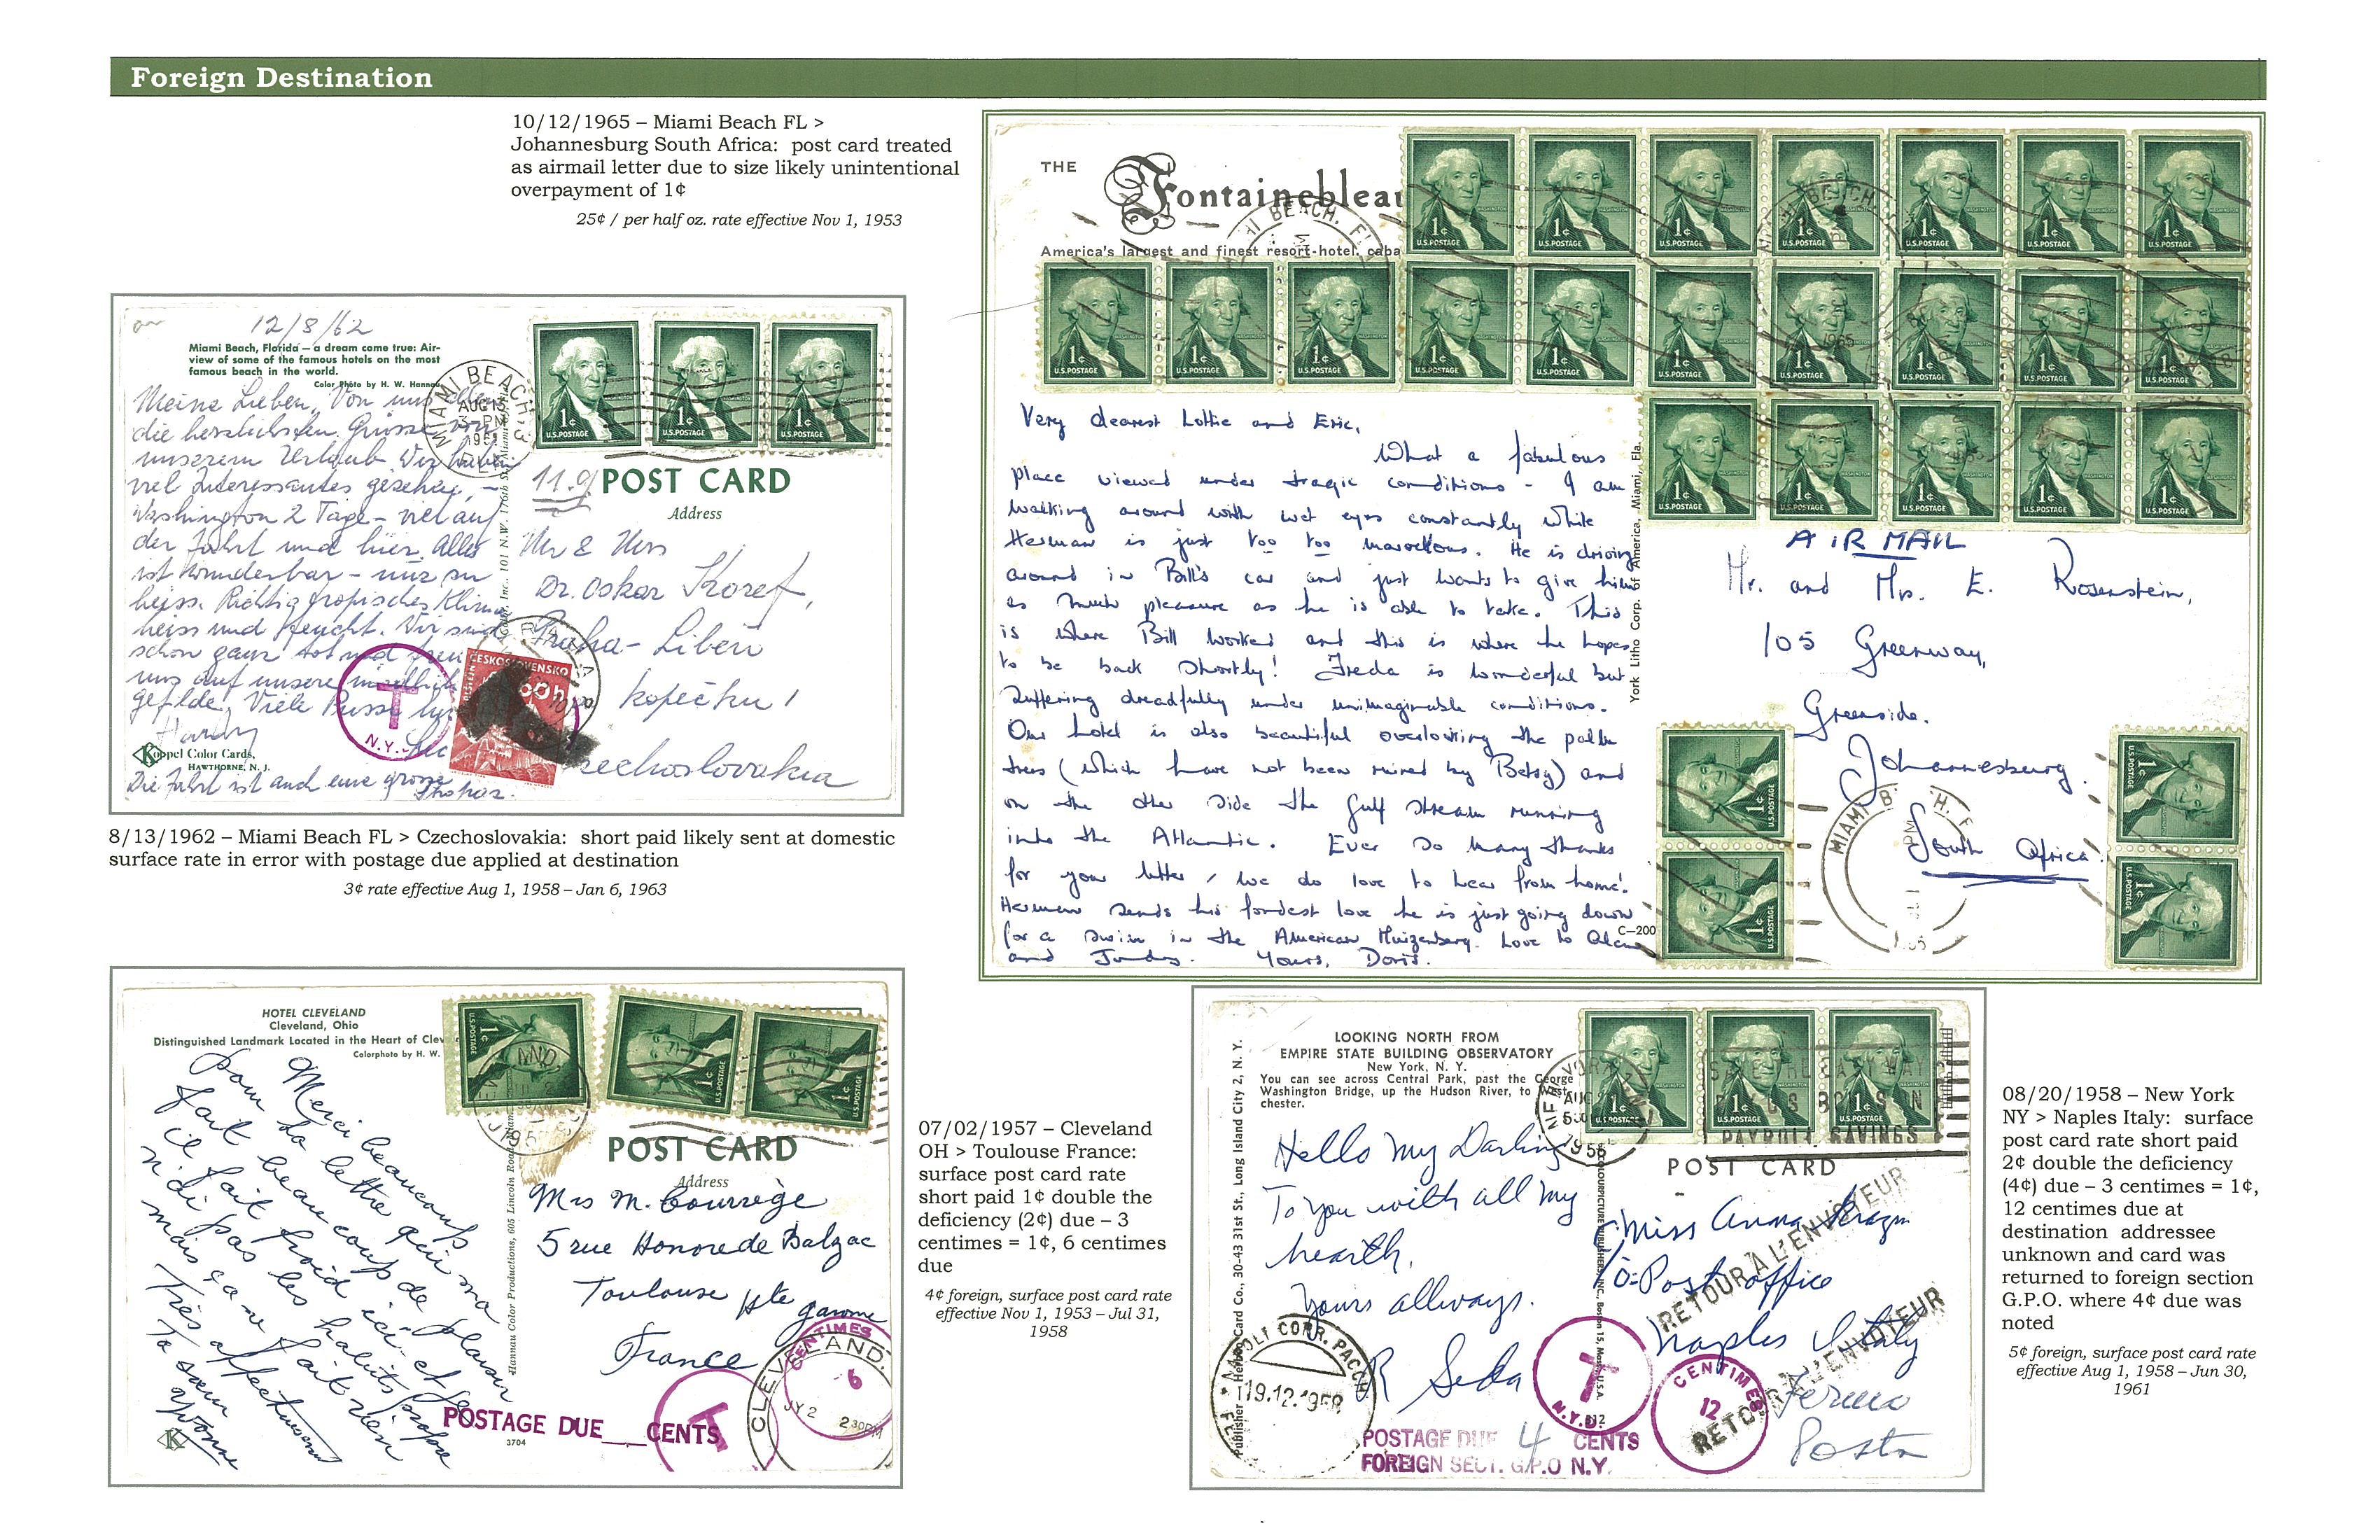 Foreign Destination
10/12/1965 – Miami Beach FL >
Johannesburg South Africa: post card treated
as airmail letter due to size likely unintentional
overpayment of 1¢
25¢ / per half oz. rate effective Nov 1, 1953
THE
Fontainebleau
America's largest and finest resort-hotel. caba
Very dearest Lottie and Eric,
What a fabulous
place viewed under tragic conditions - I am
walking around with wet eyes constantly while
Herman is just too too marvellous. He is driving
around in Bill's car and just wants to give him
as much pleasure as he is able to take. This
is where Bill worked and this is where he hopes
to be back shortly! Freda is wonderful but
suffering dreadfully under unimaginable conditions.
Our hotel is also beautiful overlooking the palm
trees (which have not been ruined by Betsy) and
on the other side the gulf stream running
into the Atlantic. Ever so many thanks
for your letter, we do love to hear from home!
Herman sends his fondest love he is just going down
for a swim in the American Muizenberg. Love to
and Yours, Doris.
York Litho Corp. of America, Miami, Fla.
C-200
AIR MAIL
Mr. and Mrs. E. Rosenstein,
105 Greenway,
Greenside.
Johannesburg.
South Africa.
1¢
U.S.POSTAGE
12/8/62
Miami Beach, Florida — a dream come true: Air-
view of some of the famous hotels on the most
famous beach in the world.
Color Photo by H. W. Hannau
Meine Lieben, Von uns allen
die herzlichsten Grüsse von
unserem Urlaub. Wir haben
viel Interessantes gesehen, -
Washington 2 Tage - viel auf
der Fahrt und hier. Alles
ist wunderbar - nur zu
heiss. Richtig tropisches Klima
heiss und feucht. Wir sind
schon ganz rot und
uns auf unsere
gefilde. Viele
Die Fahrt ist auch eine grosse
MIAMI BEACH
AUG 13
3 PM
1¢ 1¢ 1¢
U.S.POSTAGE U.S.POSTAGE U.S.POSTAGE
11.9
POST CARD
Address
Mr & Mrs
Dr. Oskar Koref,
Praha - Libeň
kopečku 1
Czechoslovakia
T
N.Y.
ČESKOSLOVENSKO
60h
Koppel Color Cards,
HAWTHORNE, N. J.
8/13/1962 – Miami Beach FL > Czechoslovakia: short paid likely sent at domestic
surface rate in error with postage due applied at destination
3¢ rate effective Aug 1, 1958 – Jan 6, 1963
HOTEL CLEVELAND
Cleveland, Ohio
Distinguished Landmark Located in the Heart of Clev
Colorphoto by H. W.
Merci beaucoup
pour ta lettre qui ma
fait beaucoup de plaisir
il fait froid ici et je
n'di pas les habits propre
mais ça ne fait rien
Très affectueusement
Ta sœur
Yvonne
Hannau Color Productions, 605 Lincoln Road
POST CARD
Address
Mrs M. Courrège
5 rue Honore de Balzac
Toulouse Hte garonne
France
POSTAGE DUE ___ CENTS
3704
T
CENTIMES
6
CLEVELAND.
JY 2
2 30PM
07/02/1957 – Cleveland
OH > Toulouse France:
surface post card rate
short paid 1¢ double the
deficiency (2¢) due – 3
centimes = 1¢, 6 centimes
due
4¢ foreign, surface post card rate
effective Nov 1, 1953 – Jul 31,
1958
LOOKING NORTH FROM
EMPIRE STATE BUILDING OBSERVATORY
New York, N. Y.
You can see across Central Park, past the George
Washington Bridge, up the Hudson River, to West-
chester.
Hello my Darling
To you with all my
hearth.
Yours allways.
R Seda
1¢ 1¢ 1¢
U.S.POSTAGE U.S.POSTAGE U.S.POSTAGE
PAYROLL SAVINGS
POST CARD
Miss Anna
c/o: Post office
Naples Italy
Fermo
Posta
RETOUR A L'ENVOYEUR
RETOUR A L'ENVOYEUR
19.12.1958
T
N.Y.D.
CENTIMES
12
POSTAGE DUE 4 CENTS
FOREIGN SECT. G.P.O N.Y.
08/20/1958 – New York
NY > Naples Italy: surface
post card rate short paid
2¢ double the deficiency
(4¢) due – 3 centimes = 1¢,
12 centimes due at
destination addressee
unknown and card was
returned to foreign section
G.P.O. where 4¢ due was
noted
5¢ foreign, surface post card rate
effective Aug 1, 1958 – Jun 30,
1961